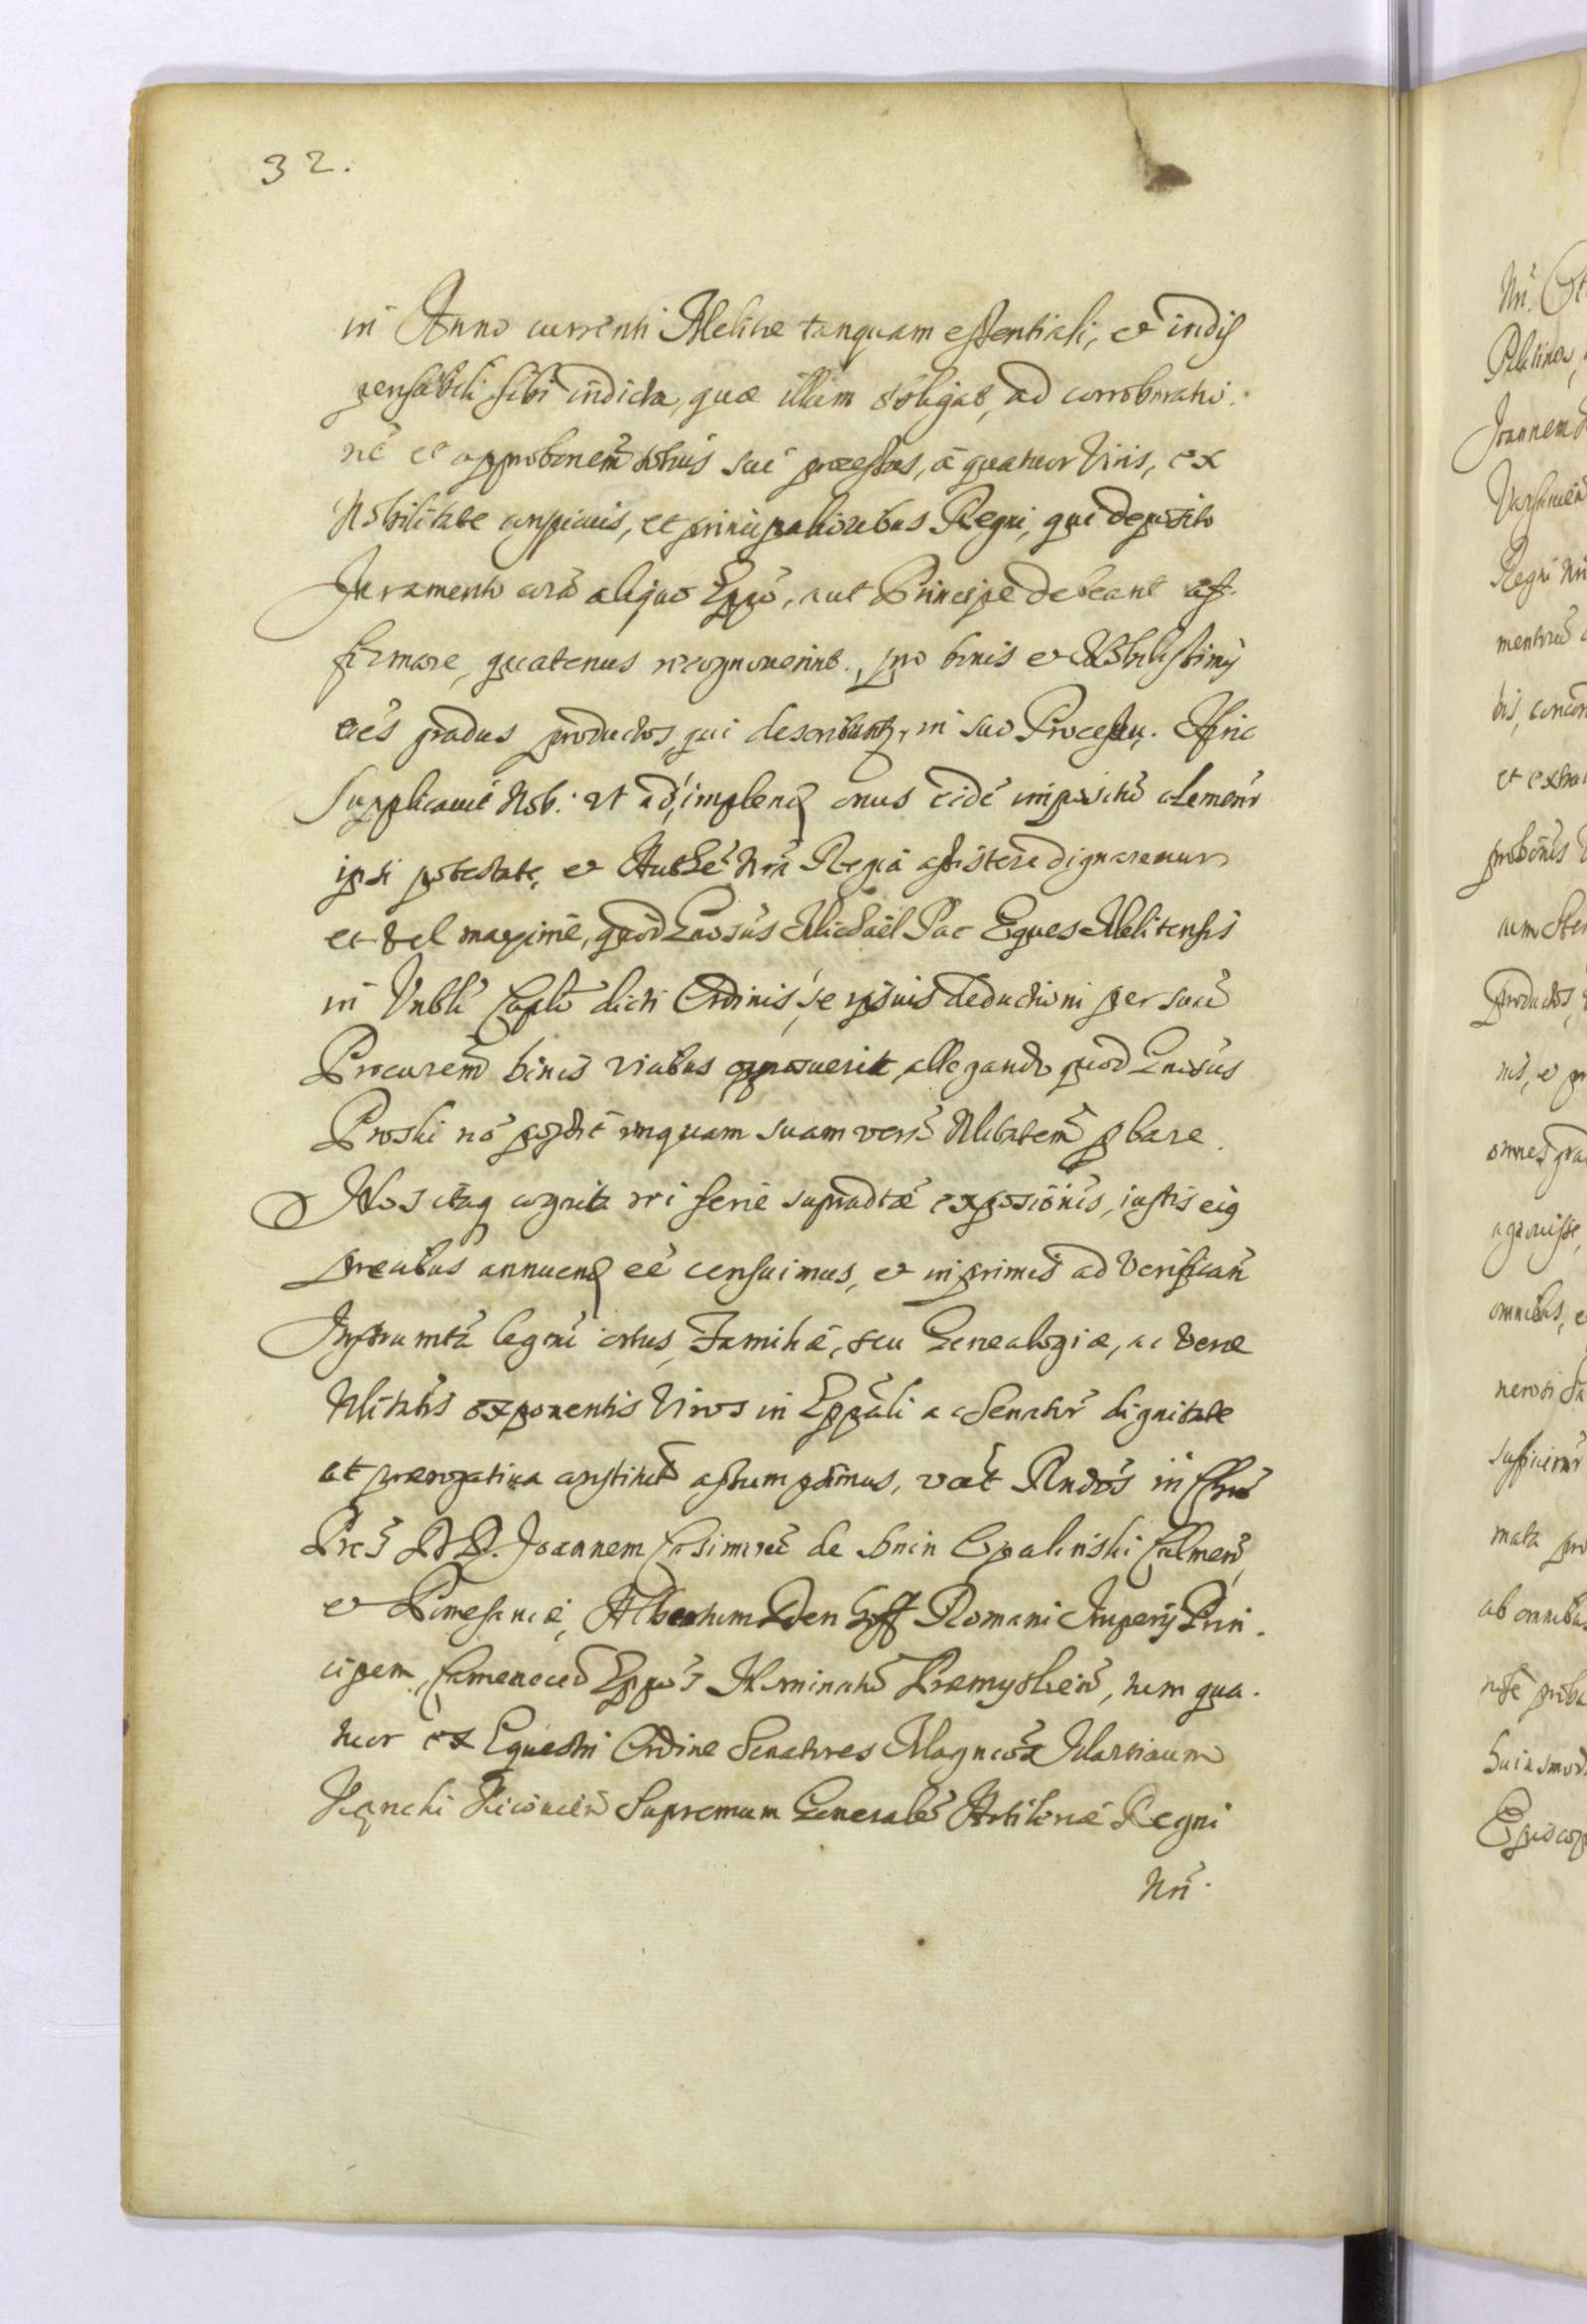 32.
in Anno currenti Melitae tanquam essentiali, et indis
pensabili sibi indicta, quae illum obligat, ad corroboratio.
nē et approbōnem̃ totius sui processus, à quatuor Viris, ex
Nobilitate conspicuis, et principalioribus Regni, qui deposito
Juramento corā aliquo Eppō, aut Principe debeant af-
firmare, quatenus recognoverint, pro bonis et Nobilissimis
oēs gradus productos, qui describunt, in suo Processu. Hinc
supplicavit Nob. ut ad implend onus eidē impositū clemenr
ipsi potestate, et Authē Nrā Regiā assistere dignaremur
et vel maxime, quod Gnosūs Michaël Pac Eques Melitensis
in Vnblī Caplō dicti Ordinis, se ipsius deductioni per suū
Procurem̄ binis vicibus opposuerit, allegando quod Gnosūs
Proski nō possit unquam suam verā Nlitatem̄ pbare.
Nos itaq cognita rei serie supradtāe exposiōnis, iustis eiq
precibus annuend eē censuimus, et in primis ad verifican̄
Instrumtā legmī ortus, Familiae, seu Genealogiae, ac verae
Nlitatīs exponentis Viros in Eppāli ac Senatorī dignitate
et praerogativa constitutō assumpsimus, votZ Rndōs in Chrō
Pres DD. Joannem Casimirū de bnin Opalinski Culmen̄,
et Pomesaniae, Albertum Den hoff Romani Imperij Prin.
cipem, Camenecen̄ Eppōs Nominatū Praemyslien̄, tum qua.
tuor ex Equestri Ordine Senatores Magncōs Martianum
Kącki Kiiovien̄ Supremum Generalē Artileriae Regni
Nrī.